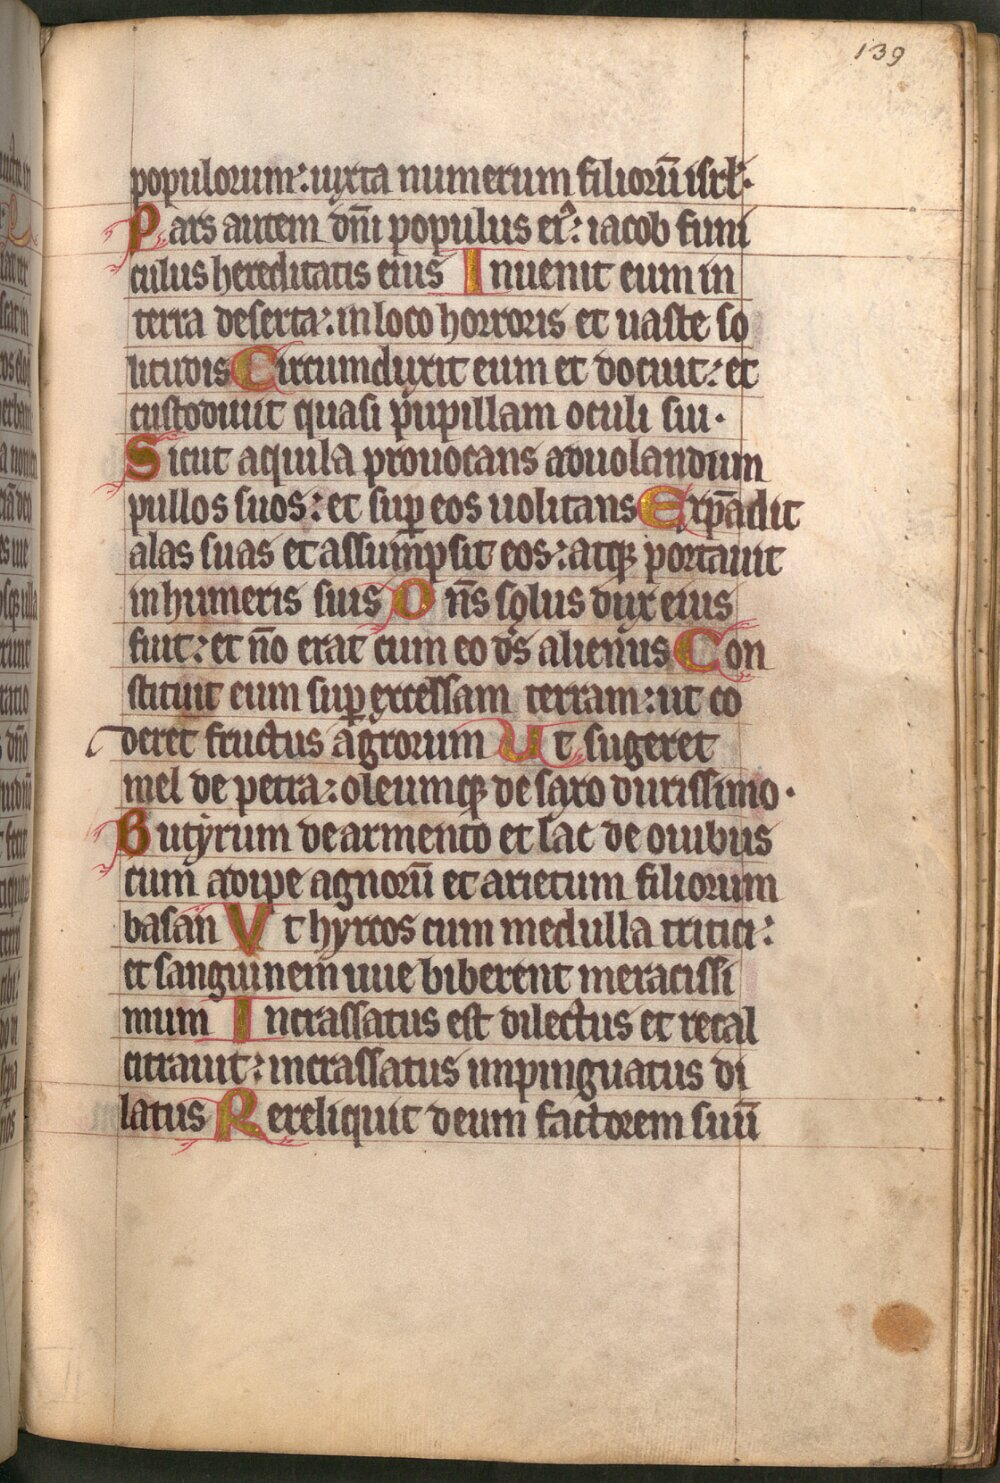 139
populorum: iuxta numerum filioru̅ isrl̅.
Pars autem dn̅i populus eiꝰ: iacob funi
culus hereditatis eius Inuenit eum in
terra deserta: in loco horroris et uaste so
litudis Circumduxit eum et docuit: et
custodiuit quasi pupillam oculi sui.
Sicut aquila prouocans aduolandum
pullos suos: et suꝑ eos uolitans Expa̅dit
alas suas et assumpsit eos: atqꝫ portauit
in humeris suis Dn̅s solus dux eius
fuit: et no̅ erat cum eo ds̅ alienus Con
stituit eum suꝑ excelsam terram: ut co
deret fructus agrorum Ut sugeret
mel de petra: oleumqꝫ de saxo durissimo.
Butyrum de armento et lac de ouibus
cum adipe agnoru̅ et arietum filiorum
basan Vt hyrcos cum medulla tritici:
et sanguinem uue biberent meracissi
mum Incrassatus est dilectus et recal
citrauit: incrassatus inpinguatus di
latus Rereliquit deum factorem suu̅